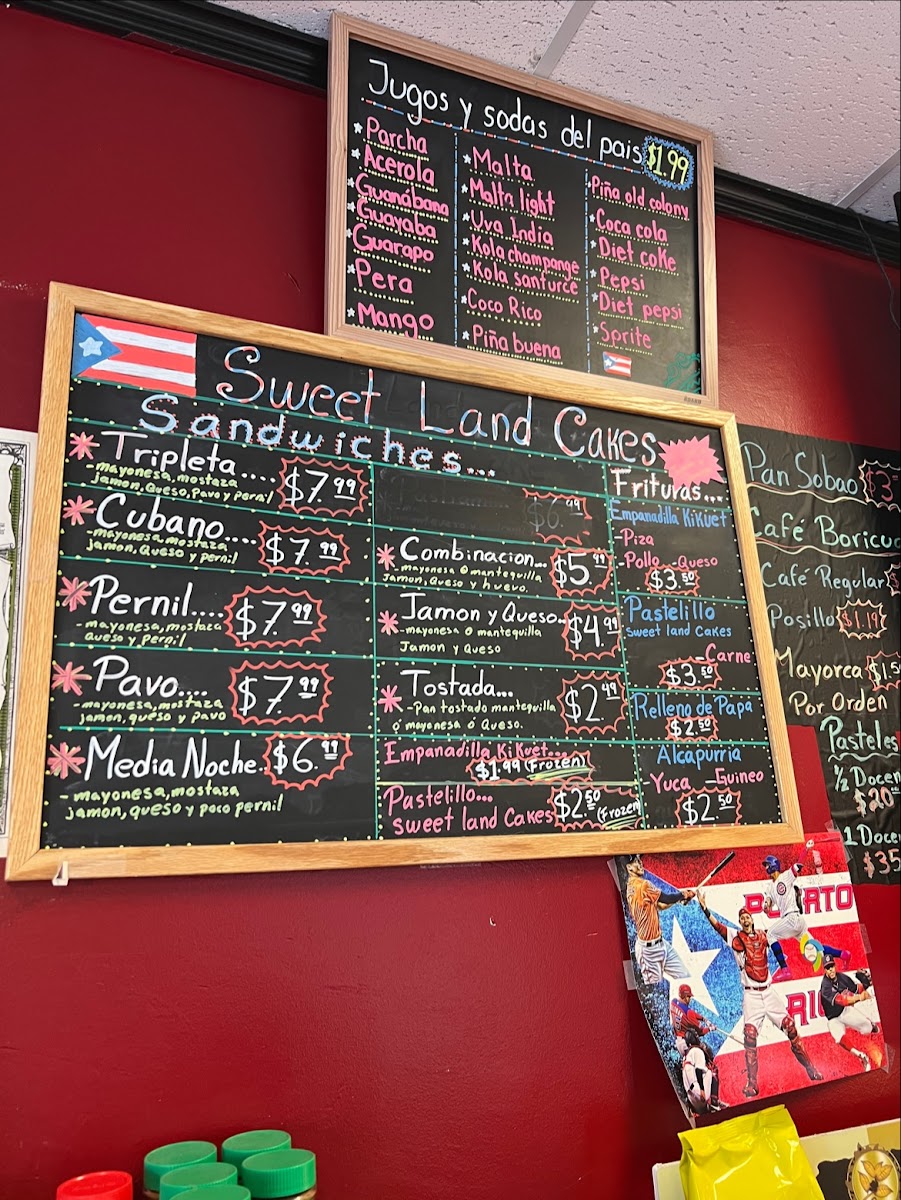 Jugos y sodas del pais $1.99
* Parcha
* Acerola
* Guanábana
* Guayaba
* Guarapo
* Pera
* Mango
* Malta
* Malta light
* Uva India
* Kola champange
* Kola sanfurce
* Coco Rico
* Piña buena
* Piña old colony
* Coca cola
* Diet coke
* Pepsi
* Diet pepsi
* Sprite
Sweet Land Cakes
Sandwiches...
* Tripleta.... $7.99
- mayonesa, mostaza
jamon, Queso, Pavo y Pernil
* Cubano.... $7.99
- mayonesa, mostaza
jamon, Queso y pernil
* Pernil.... $7.99
- mayonesa, mostaza
Queso y pernil
* Pavo.... $7.99
- mayonesa, mostaza
jamon, queso y pavo
* Media Noche. $6.99
- mayonesa, mostaza
jamon, queso y poco pernil
$6.99
* Combinacion... $5.99
mayonesa o mantequilla
Jamon, Queso y huevo.
* Jamon y Queso... $4.99
- mayonesa o mantequilla
Jamon y Queso
* Tostada... $2.49
- Pan tostado mantequilla
ó mayonesa ó Queso.
Empanadilla KiKuet...
$1.99 (Frozen)
Pastelillo...
sweet land Cakes $2.50 (Frozen)
Frituras...
Empanadilla KiKuet
- Piza
- Pollo - Queso
$3.50
Pastelillo
Sweet land Cakes
- Carne
$3.50
Relleno de Papa
$2.50
Alcapurria
- Yuca - Guineo
$2.50
Pan Sobao $3
Café Boricua
Café Regular $
Posillo $1.19
Mayorca $1.5
Por Orden
Pasteles
½ Docen
$20
1 Docen
$35
PUERTO
RI